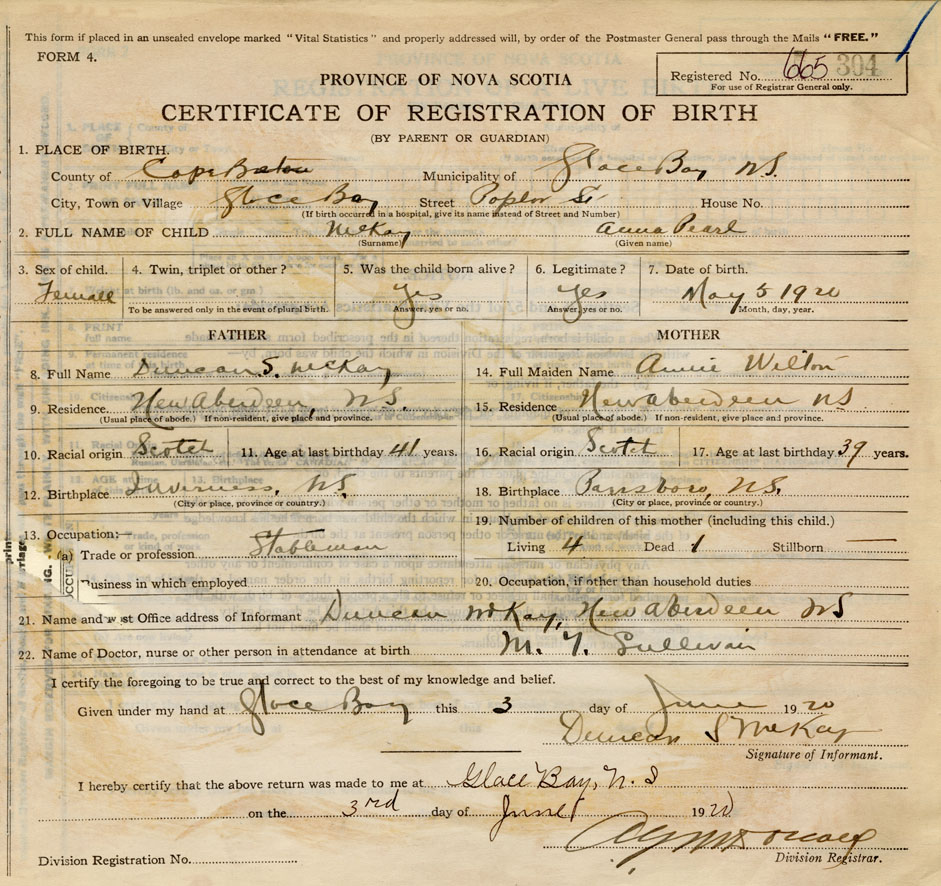 This form if placed in an unsealed envelope marked "Vital Statistics" and properly addressed will, by order of the Postmaster General pass through the Mails "FREE."
FORM 4.
PROVINCE OF NOVA SCOTIA
Registered No. 665 304
For use of Registrar General only.
CERTIFICATE OF REGISTRATION OF BIRTH
(BY PARENT OR GUARDIAN)
1. PLACE OF BIRTH.
County of Cape Breton Municipality of Glace Bay N.S.
City, Town or Village Glace Bay Street Poplar St House No.
(If birth occurred in a hospital, give its name instead of Street and Number)
2. FULL NAME OF CHILD McKay Anna Pearl
(Surname) (Given name)
3. Sex of child. 4. Twin, triplet or other? 5. Was the child born alive? 6. Legitimate? 7. Date of birth.
Female Yes Yes May 5 1920
To be answered only in the event of plural birth. Answer, yes or no. Answer, yes or no. Month, day, year.
FATHER MOTHER
8. Full Name Duncan S. McKay 14. Full Maiden Name Annie Wilton
9. Residence New Aberdeen, N.S. 15. Residence New Aberdeen NS
(Usual place of abode.) If non-resident, give place and province. (Usual place of abode.) If non-resident, give place and province.
10. Racial origin Scotch 11. Age at last birthday 41 years. 16. Racial origin Scotch 17. Age at last birthday 39 years.
12. Birthplace Inverness, N.S. 18. Birthplace Parrsboro, N.S.
(City or place, province or country.) (City or place, province or country.)
13. Occupation:— 19. Number of children of this mother (including this child.)
(a) Trade or profession Stableman Living 4 Dead 1 Stillborn —
usiness in which employed 20. Occupation, if other than household duties
21. Name and Office address of Informant Duncan McKay, New Aberdeen NS
22. Name of Doctor, nurse or other person in attendance at birth M. T. Sullivan
I certify the foregoing to be true and correct to the best of my knowledge and belief.
Given under my hand at Glace Bay this 3 day of June 1920
Duncan S McKay
Signature of Informant.
I hereby certify that the above return was made to me at Glace Bay, N.S
on the 3rd day of June 1920
Division Registrar.
Division Registration No.